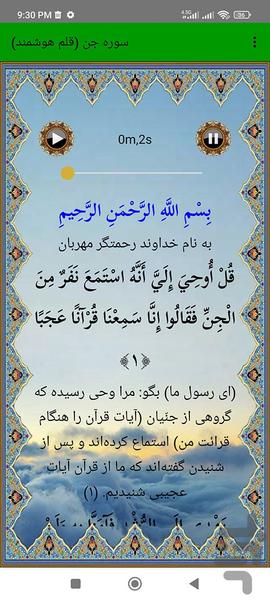 9:30 PM
سوره جن (قلم هوشمند)
0m,2s
بِسْمِ اللَّهِ الرَّحْمَنِ الرَّحِيمِ
به نام خداوند رحمتگر مهربان
قُلْ أُوحِيَ إِلَيَّ أَنَّهُ اسْتَمَعَ نَفَرٌ مِنَ
الْجِنِّ فَقَالُوا إِنَّا سَمِعْنَا قُرْآنًا عَجَبًا
﴿١﴾
(ای رسول ما) بگو: مرا وحی رسیده که
گروهی از جنّیان (آیات قرآن را هنگام
قرائت من) استماع کرده‌اند و پس از
شنیدن گفته‌اند که ما از قرآن آیات
عجیبی شنیدیم. (۱)